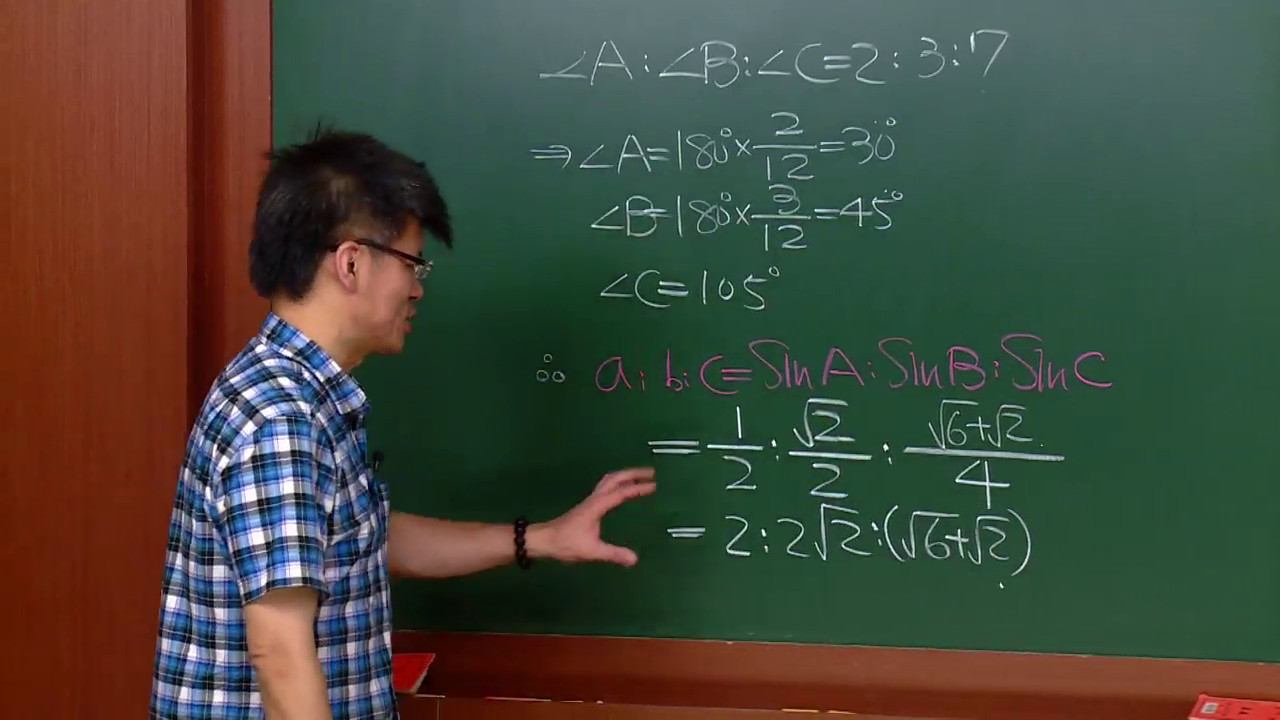 ∠A:∠B:∠C=2:3:7
⇒∠A=180°×2/12=30°
∠B=180°×3/12=45°
∠C=105°
∴ a:b:c=sinA:sinB:sinC
=1/2:√2/2:(√6+√2)/4
=2:2√2:(√6+√2)